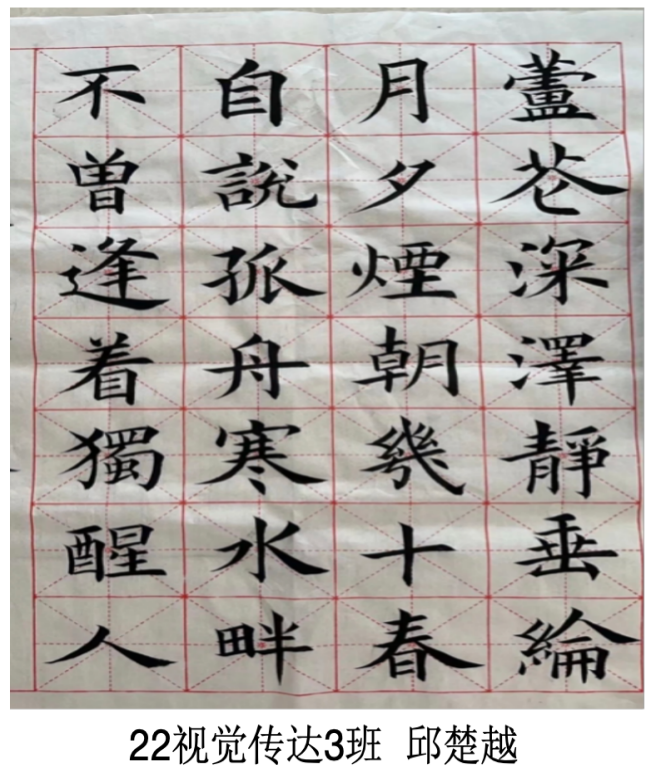 蘆芲深澤靜垂綸
月夕煙朝幾十春
自説孤舟寒水畔
不曾逢着獨醒人
22视觉传达3班 邱楚越